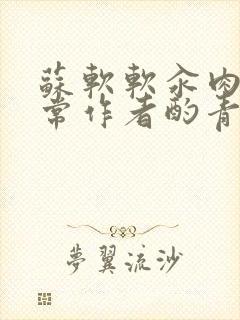 蘇軟軟汆肉日
常作者酌青
夢翼流沙